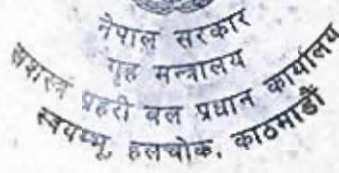 नेपाल सरकार
गृह मन्त्रालय
सशस्त्र प्रहरी बल प्रधान कार्यालय
स्वयम्भू, हलचोक, काठमाडौं